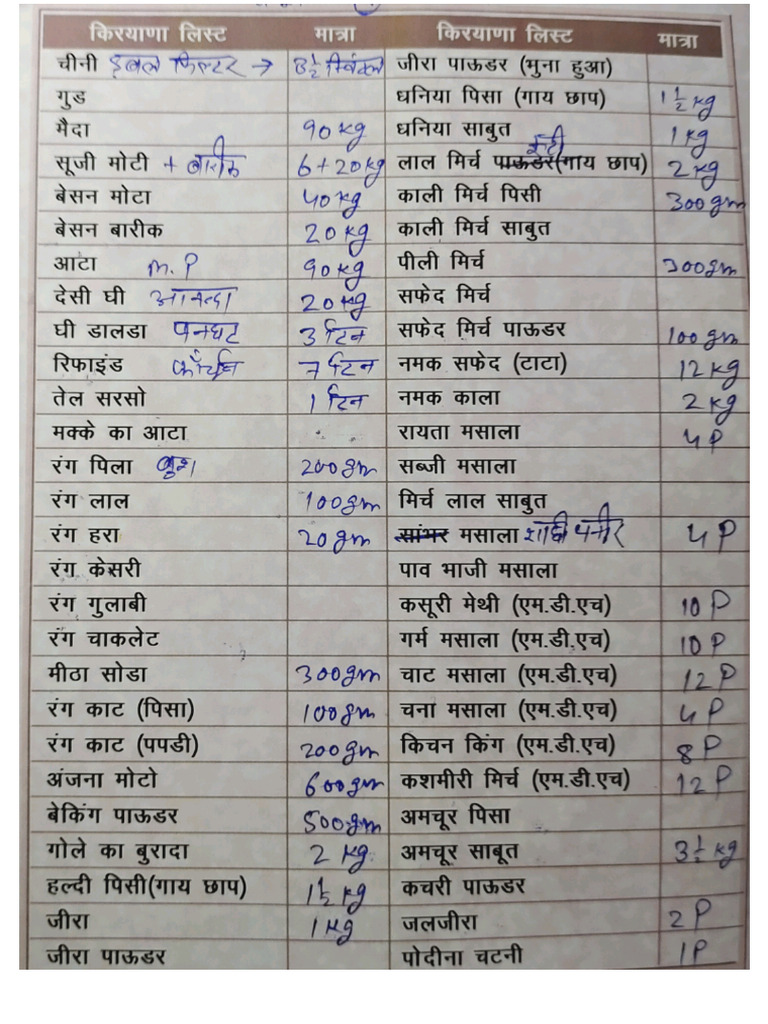 किरयाणा लिस्ट मात्रा किरयाणा लिस्ट मात्रा
चीनी डबल फिल्टर → 3 1/2 क्विंटल जीरा पाऊडर (भुना हुआ)
गुड धनिया पिसा (गाय छाप) 1 1/2 kg
मैदा 90 kg धनिया साबुत 1 kg
सूजी मोटी + बारीक 6+20 kg लाल मिर्च पाऊडर कुटी (गाय छाप) 2 kg
बेसन मोटा 40 kg काली मिर्च पिसी 300 gm
बेसन बारीक 20 kg काली मिर्च साबुत
आटा M.P 90 kg पीली मिर्च 300 gm
देसी घी आनन्दा 20 kg सफेद मिर्च
घी डालडा पनघट 3 टिन सफेद मिर्च पाऊडर 100 gm
रिफाइंड 7 टिन नमक सफेद (टाटा) 12 kg
तेल सरसो 1 टिन नमक काला 2 kg
मक्के का आटा रायता मसाला 4 P
रंग पिला 200 gm सब्जी मसाला
रंग लाल 100 gm मिर्च लाल साबुत
रंग हरा 20 gm सांभर मसाला शाही पनीर 4 P
रंग केसरी पाव भाजी मसाला
रंग गुलाबी कसूरी मेथी (एम.डी.एच) 10 P
रंग चाकलेट गर्म मसाला (एम.डी.एच) 10 P
मीठा सोडा 300 gm चाट मसाला (एम.डी.एच) 12 P
रंग काट (पिसा) 100 gm चना मसाला (एम.डी.एच) 4 P
रंग काट (पपडी) 200 gm किचन किंग (एम.डी.एच) 8 P
अंजना मोटो 600 gm कशमीरी मिर्च (एम.डी.एच) 12 P
बेकिंग पाऊडर 500 gm अमचूर पिसा
गोले का बुरादा 2 kg अमचूर साबूत 3 1/2 kg
हल्दी पिसी(गाय छाप) 1 1/2 kg कचरी पाऊडर
जीरा 1 kg जलजीरा 2 P
जीरा पाऊडर पोदीना चटनी 1 P